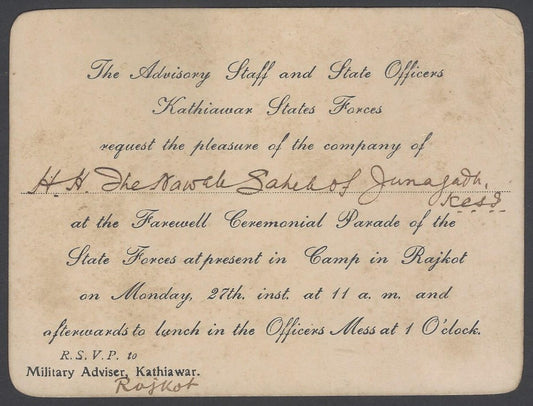 The Advisory Staff and State Officers
Kathiawar States Forces
request the pleasure of the company of
H. H. The Nawab Saheb of Junagadh,
at the Farewell Ceremonial Parade of the
State Forces at present in Camp in Rajkot
on Monday, 27th. inst. at 11 a. m. and
afterwards to lunch in the Officers Mess at 1 O'clock.
R. S. V. P. to
Military Adviser, Kathiawar.
Rajkot